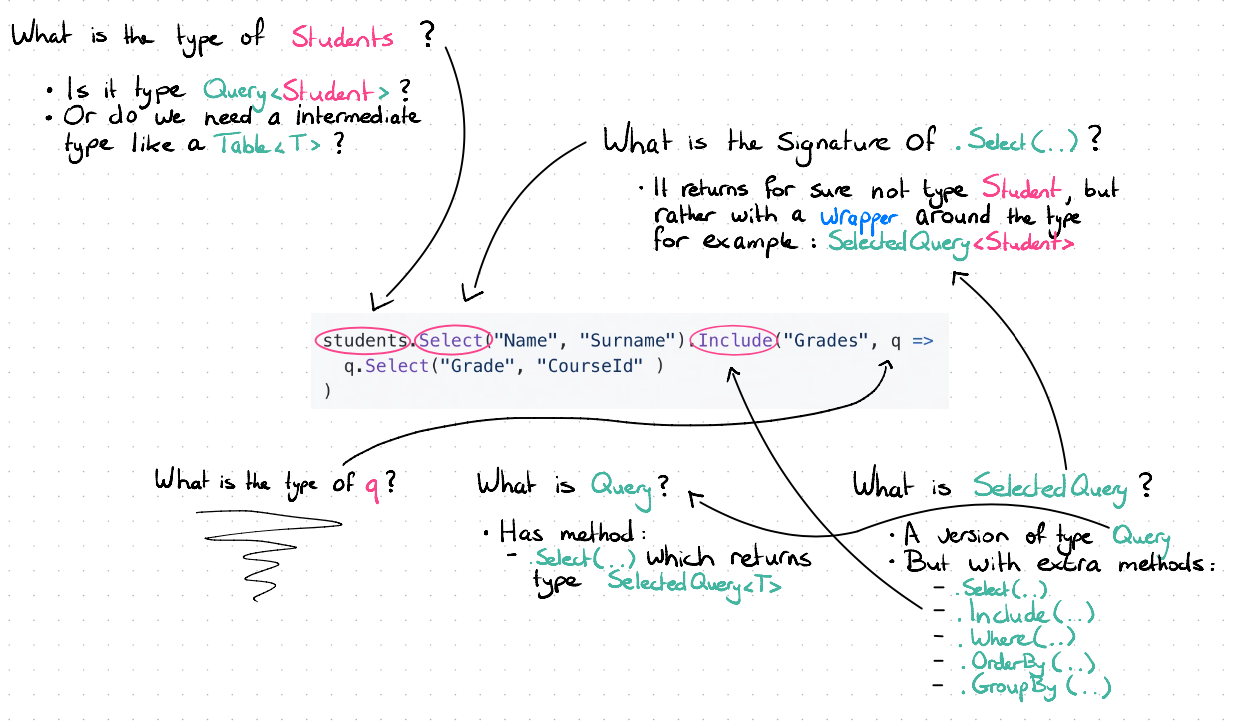 What is the type of Students ?
• Is it type Query<Student> ?
• Or do we need a intermediate
type like a Table<T> ?
What is the Signature of .Select(..) ?
• It returns for sure not type Student, but
rather with a wrapper around the type
for example : SelectedQuery<Student>
students.Select("Name", "Surname").Include("Grades", q =>
q.Select("Grade", "CourseId" )
)
What is the type of q ?
What is Query ?
• Has method :
- .Select(..) which returns
type SelectedQuery<T>
What is SelectedQuery ?
• A version of type Query
• But with extra methods :
- .Select(..)
- .Include(...)
- .Where(..)
- .OrderBy(..)
- .GroupBy(..)